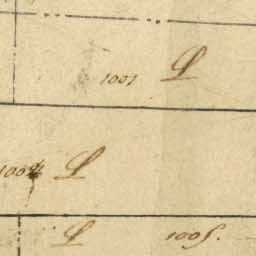 1001 L
1004 L
L 1005.